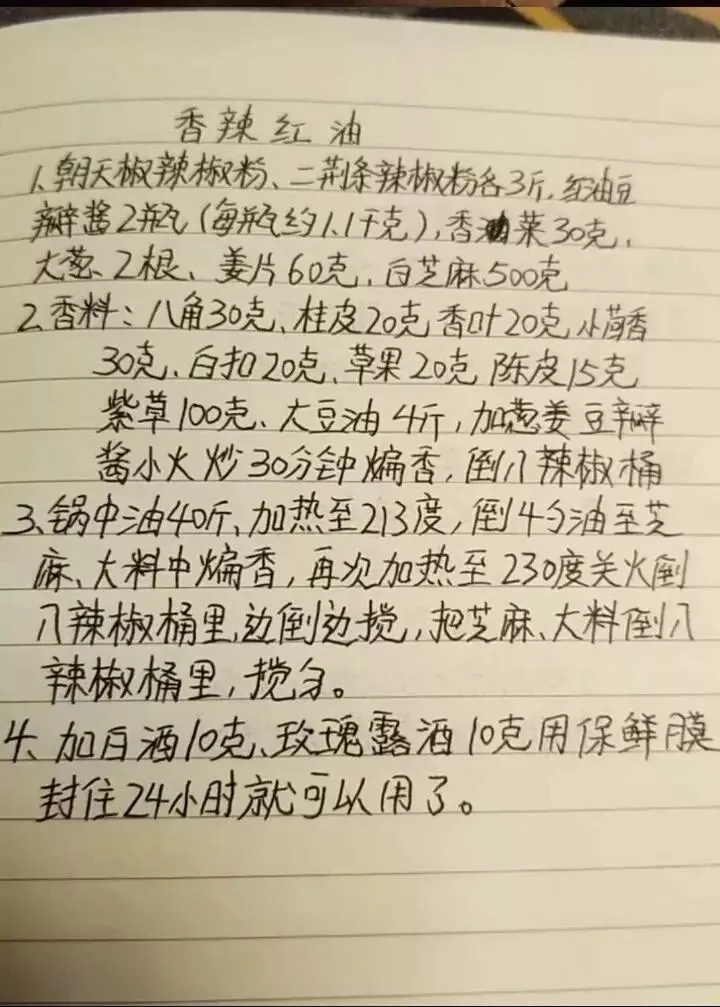 香辣红油
1、朝天椒辣椒粉、二荆条辣椒粉各3斤，红油豆
瓣酱2瓶（每瓶约1.1千克），香菜30克，
大葱、2根、姜片60克，白芝麻500克
2、香料：八角30克、桂皮20克香叶20克小茴香
30克、白扣20克、草果20克陈皮15克
紫草100克、大豆油4斤，加葱姜豆瓣
酱小火炒30分钟煸香，倒八辣椒桶
3、锅中油40斤、加热至213度，倒4勺油至芝
麻、大料中煸香，再次加热至230度关火倒
八辣椒桶里，边倒边搅，把芝麻、大料倒八
辣椒桶里，搅匀。
4、加白酒10克、玫瑰露酒10克用保鲜膜
封住24小时就可以用了。